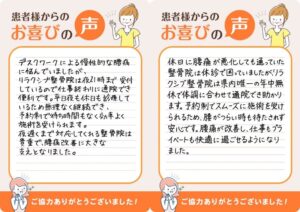 患者様からの
お喜びの声
デスクワークによる慢性的な腰痛
に悩んでいましたが、
リラクシブ整骨院は夜21時まで受付
しているので仕事終わりに通院でき
便利です。平日夜も休日も診療して
いるため無理なく継続でき、
予約制で待ち時間もなく効率よく
施術を受けられます。
夜遅くまで対応してくれる整骨院は
貴重で、腰痛改善に大きな
支えとなりました。
ご協力ありがとうございました!
患者様からの
お喜びの声
休日に腰痛が悪化しても通っていた
整骨院は休診で困っていましたがリラ
クシブ整骨院は県内唯一の年中無
休で体調に合わせて通院でき助かり
ます。予約制でスムーズに施術を受け
られるため、腰がつらい時も待たされず
安心です。腰痛が改善し、仕事もプラ
イベートも快適に過ごせるようになり
ました。
ご協力ありがとうございました!